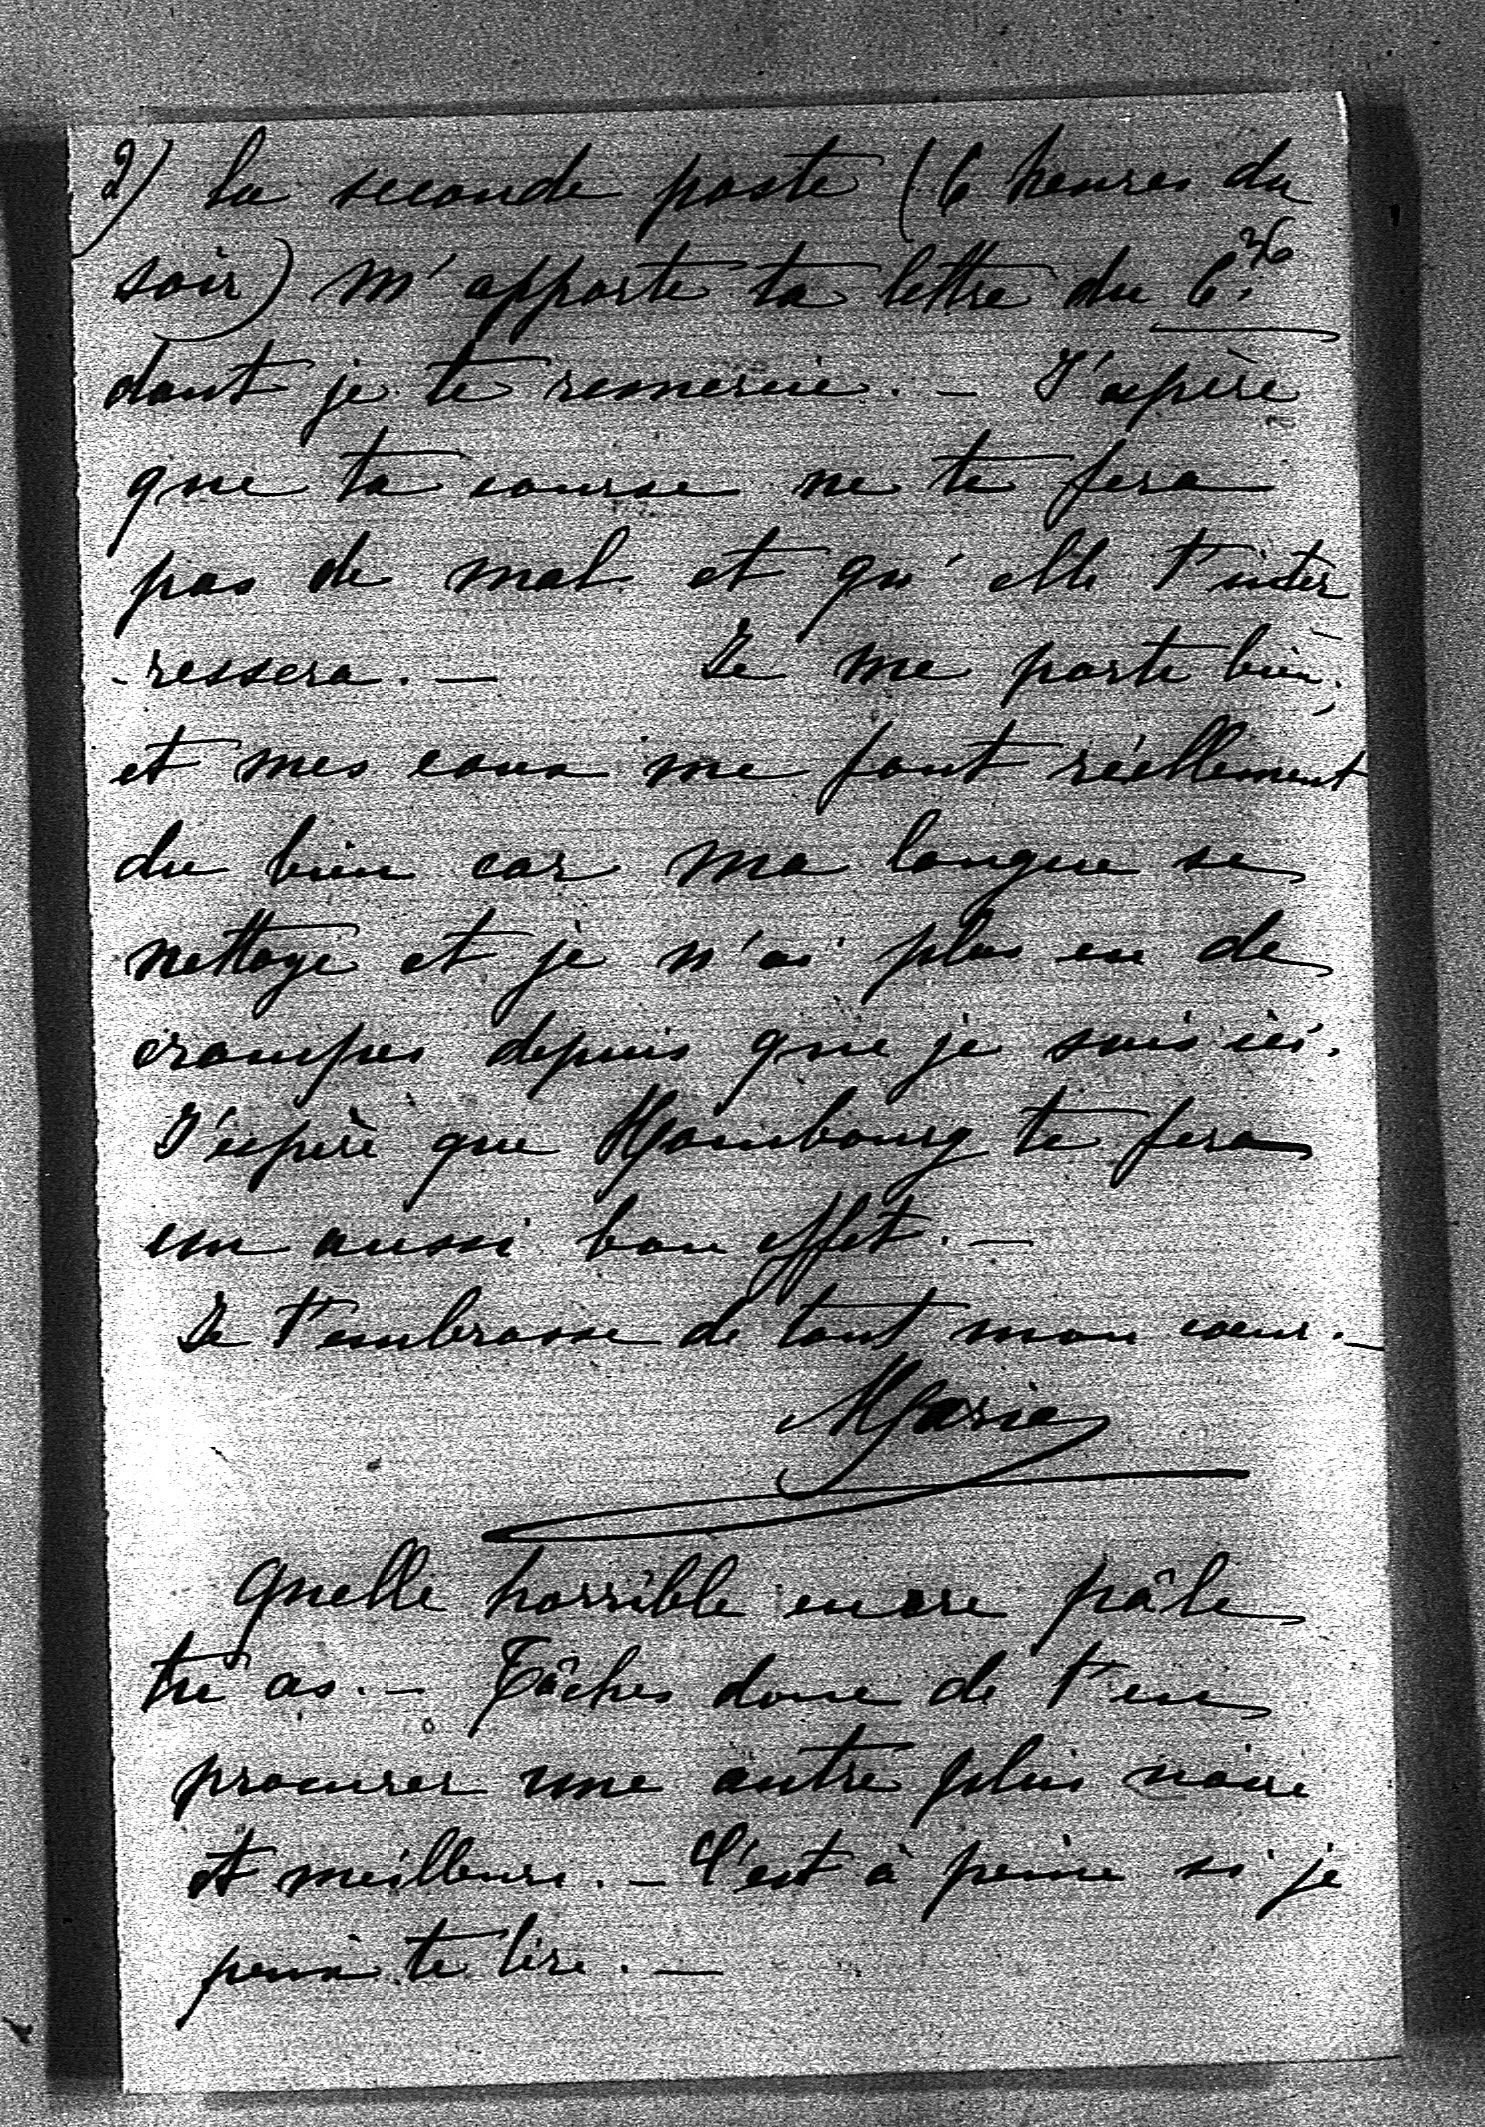 2) La seconde poste (6 heures du
soir) m'apporte ta lettre du 6.
dont je te remercie. — J'espère
que ta course ne te fera
pas de mal et qu'elle t'inter
-ressera. — Je me porte bien.
et mes eaux me font réellement
du bien car ma langue se
nettoye et je n'ai plus eu de
crampes depuis que je suis ici.
J'espère que Hombourg te fera
un aussi bon effet. —
Je t'embrasse de tout mon coeur. —
Marie
Quelle horrible encre pâle
tu as. — Tâches donc de t'en
procurer une autre plus noire
et meilleure. — C'est à peine si je
peux te lire. —